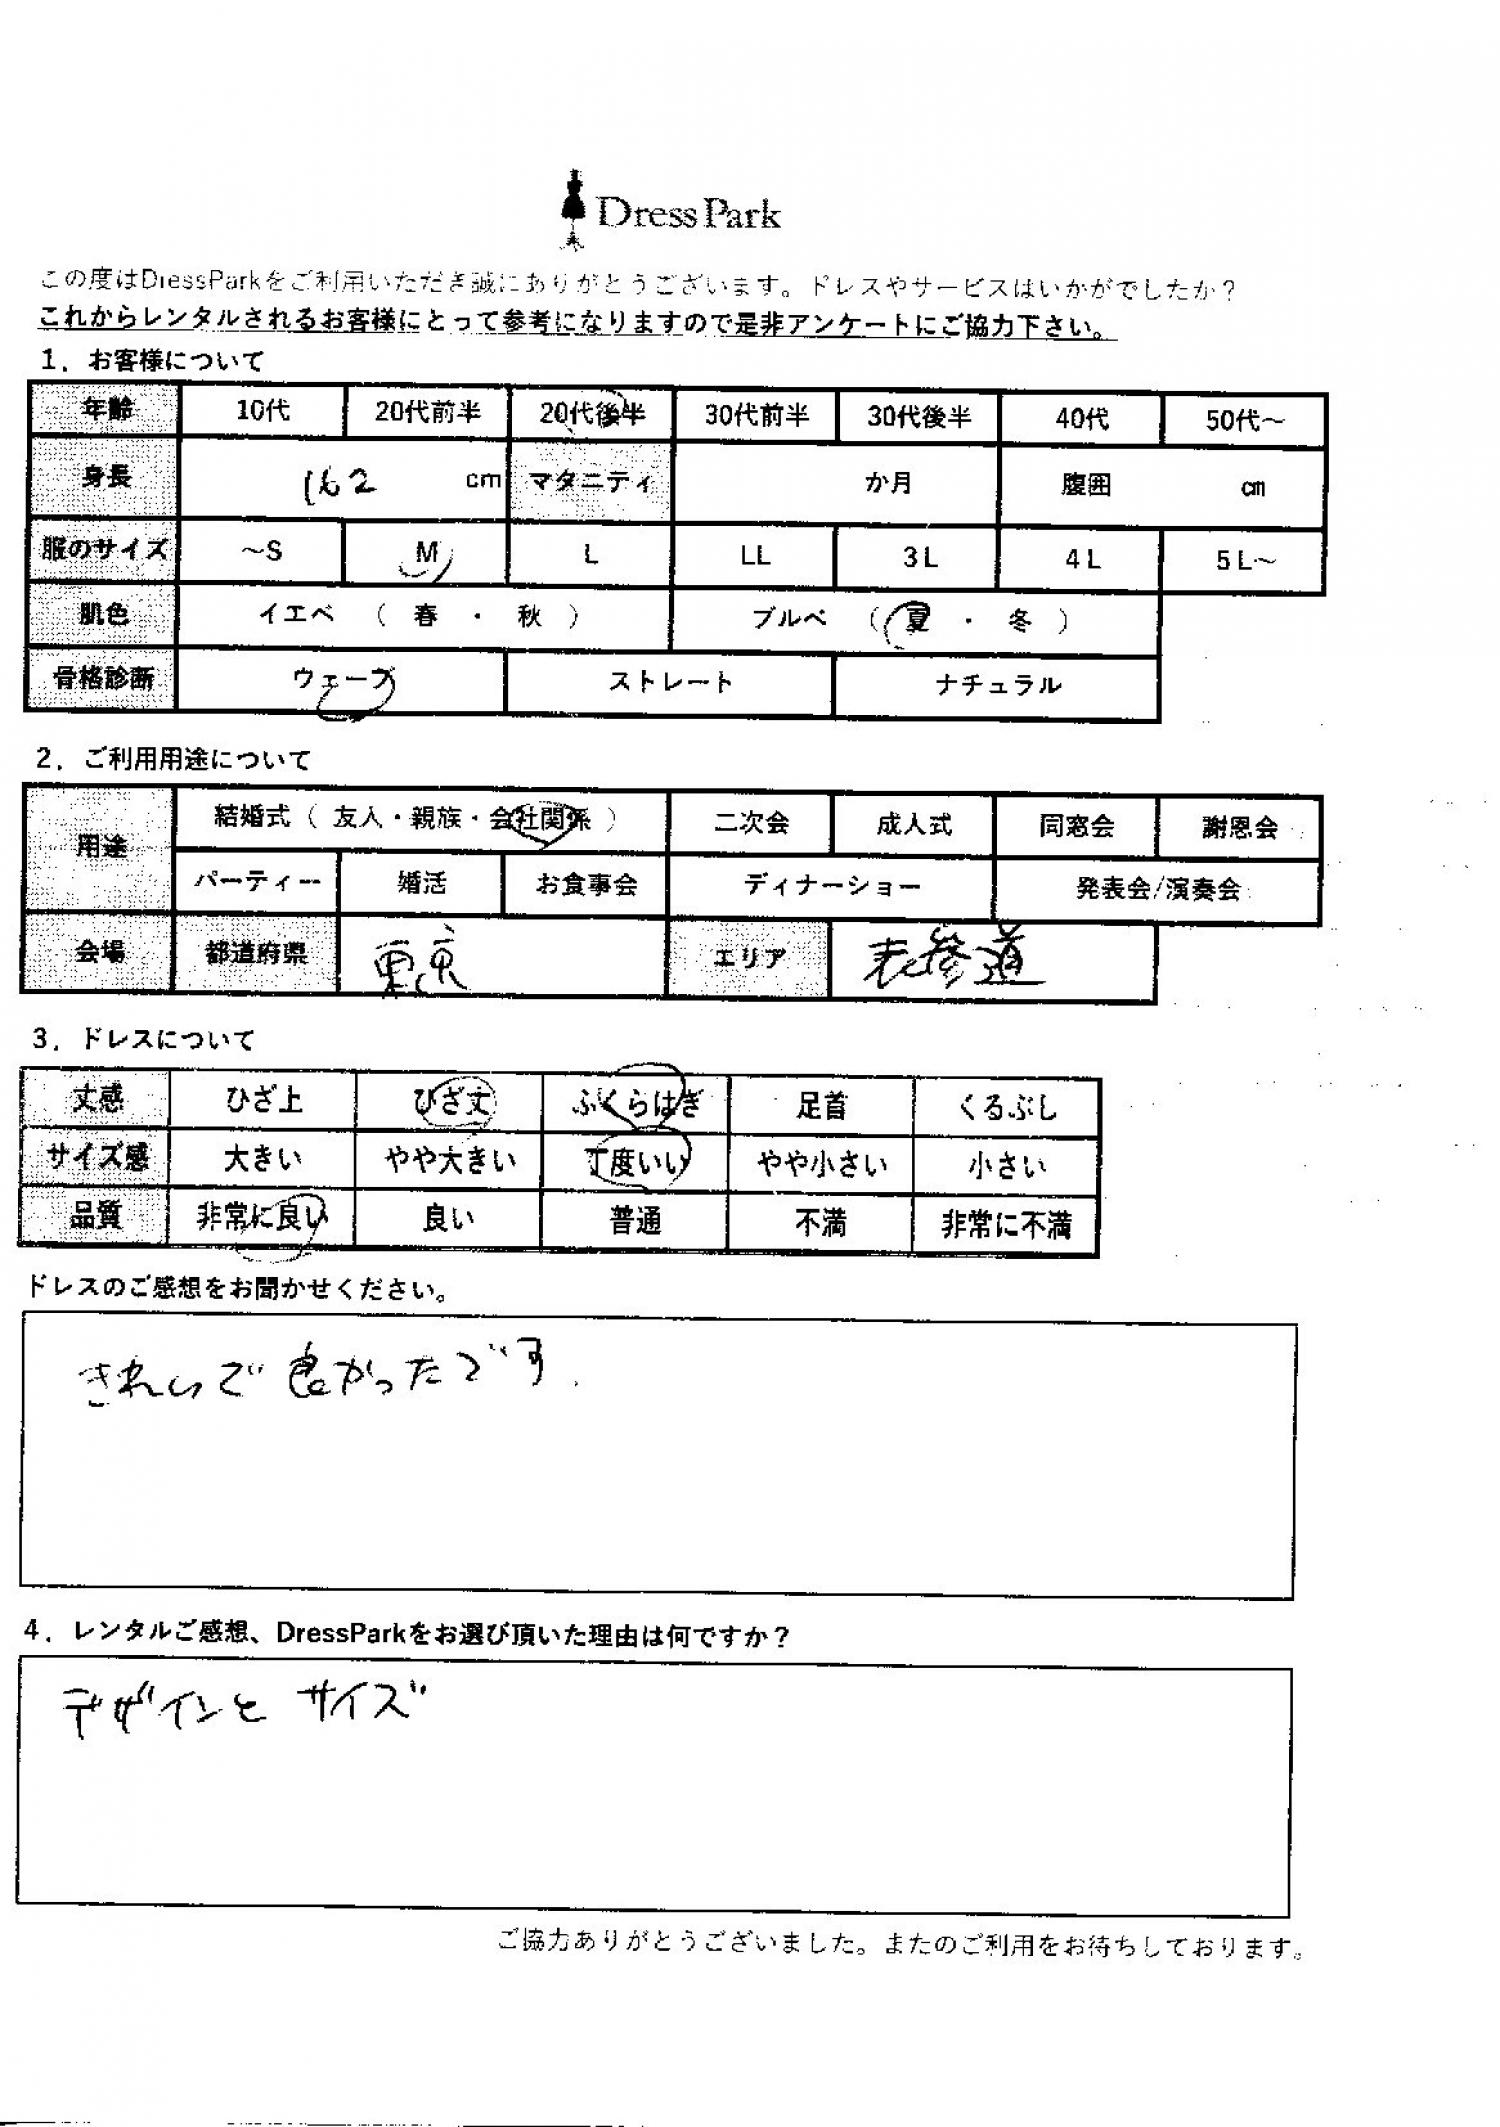 DressPark
この度はDressParkをご利用いただき誠にありがとうございます。ドレスやサービスはいかがでしたか？
これからレンタルされるお客様にとって参考になりますので是非アンケートにご協力下さい。
1．お客様について
年齢 10代 20代前半 20代後半 30代前半 30代後半 40代 50代～
身長 162 cm マタニティ か月 腹囲 cm
服のサイズ ～S M L LL 3L 4L 5L～
肌色 イエベ （ 春 ・ 秋 ） ブルベ （ 夏 ・ 冬 ）
骨格診断 ウェーブ ストレート ナチュラル
2．ご利用用途について
用途 結婚式（ 友人・親族・会社関係 ） 二次会 成人式 同窓会 謝恩会
パーティー 婚活 お食事会 ディナーショー 発表会/演奏会
会場 都道府県 東京 エリア 表参道
3．ドレスについて
丈感 ひざ上 ひざ丈 ふくらはぎ 足首 くるぶし
サイズ感 大きい やや大きい 丁度いい やや小さい 小さい
品質 非常に良い 良い 普通 不満 非常に不満
ドレスのご感想をお聞かせください。
きれいで良かったです.
4．レンタルご感想、DressParkをお選び頂いた理由は何ですか？
デザインと サイズ
ご協力ありがとうございました。またのご利用をお待ちしております。